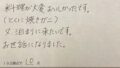 料理が大変おいしかったです。
(とくに焼きがに)
又泊まりに来たいです。
お世話になりました。